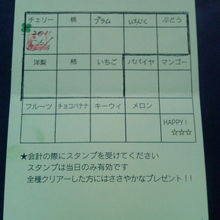 チェリー 桃 プラム いちじく ぶどう
洋梨 柿 いちご パパイヤ マンゴー
フルーツ チョコバナナ キーウィ メロン
HAPPY!
☆☆☆
★会計の際にスタンプを受けてください
スタンプは当日のみ有効です
全種クリアーした方にはささやかなプレゼント!!